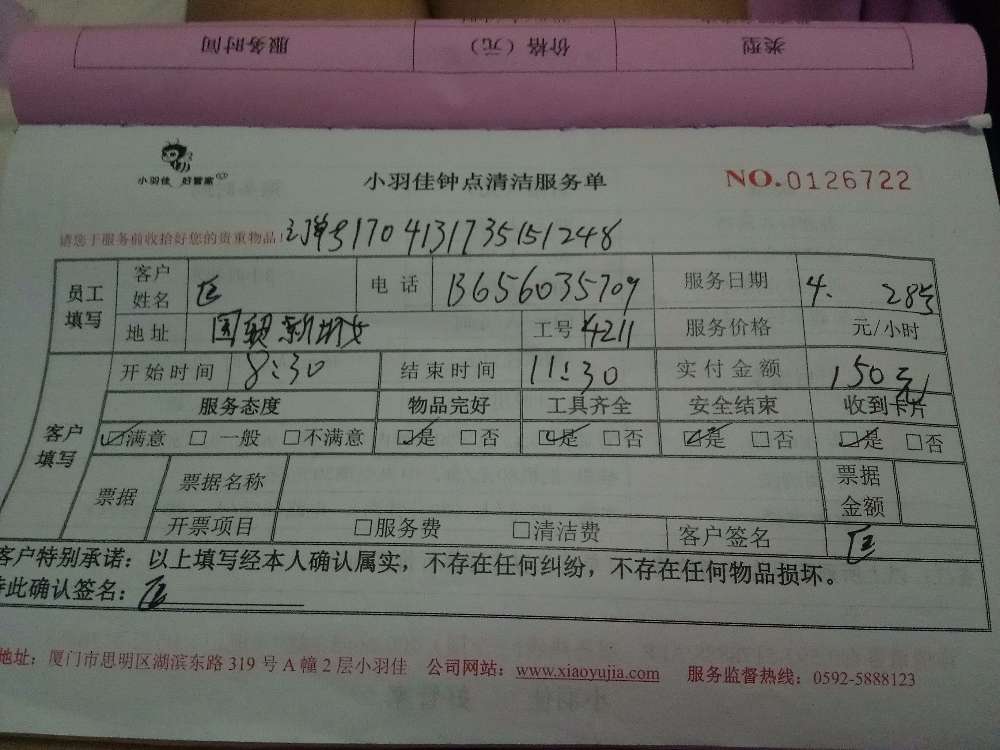 服务时间 价格（元） 类型
小羽佳 好管家
小羽佳钟点清洁服务单
NO.0126722
请您于服务前收拾好您的贵重物品! 订单号1704131735151248
员工填写 客户姓名 匡 电话 13656035709 服务日期 4. 28号
地址 国贸新城 工号 4211 服务价格 元/小时
客户填写 开始时间 8:30 结束时间 11:30 实付金额 150元
服务态度 物品完好 工具齐全 安全结束 收到卡片
☑满意 □一般 □不满意 ☑是 □否 ☑是 □否 ☑是 □否 ☑是 □否
票据 票据名称 票据金额
开票项目 □服务费 □清洁费 客户签名 匡
客户特别承诺：以上填写经本人确认属实，不存在任何纠纷，不存在任何物品损坏。
特此确认签名：匡
地址：厦门市思明区湖滨东路 319 号 A 幢 2 层小羽佳 公司网站：www.xiaoyujia.com 服务监督热线：0592-5888123